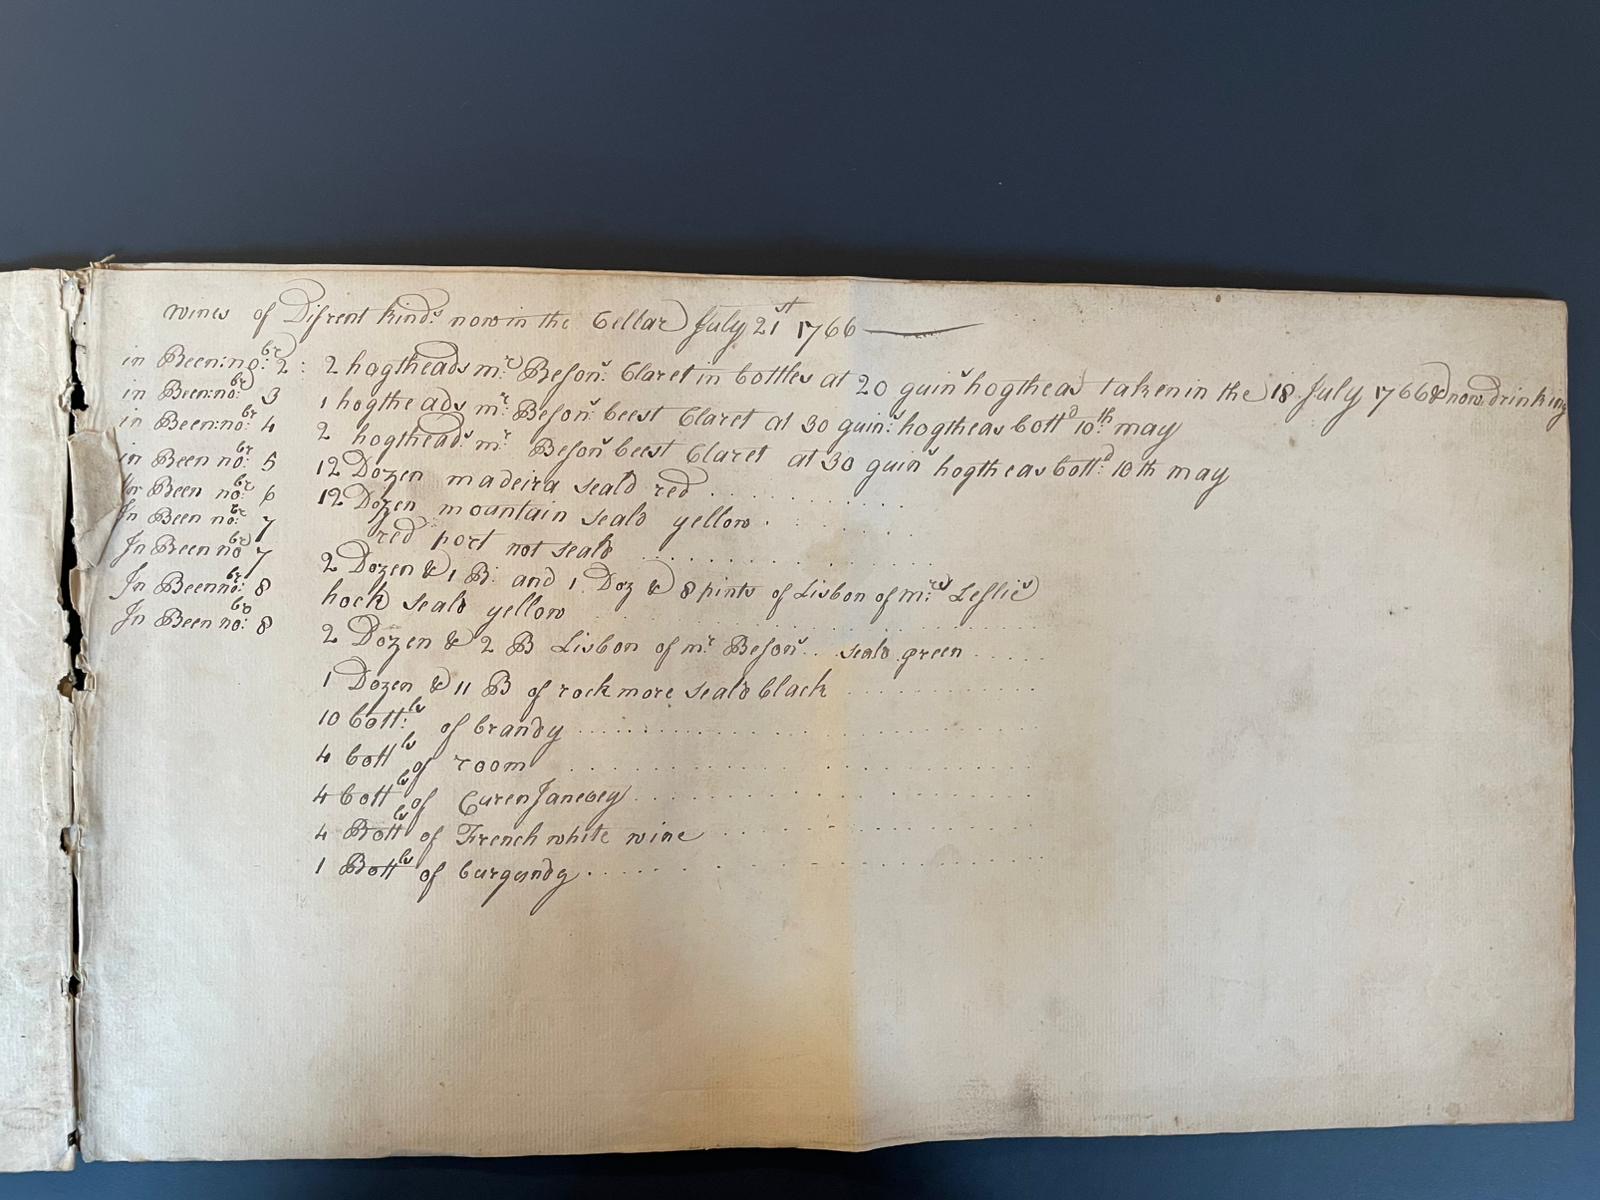 wines of Difrent kinds now in the Cellar July 21st 1766
in Been: no:br 2: 2 hogtheads mr Besons: Claret in bottles at 20 guins hogthead taken in the 18 July 1766 & now drinking
in Been: no:br 3 1 hogtheads mr Besons: beest Claret at 30 guins: hogtheas bottd 10th may
in Been: no:br 4 2 hogtheads mr: Besons beest Claret at 30 guins hogtheas bottd: 10th may
in Been no:br 5 12 Dozen madeira seald red
In Been no:br 6 12 Dozen mountain seald yellow
In Been no:br 7 red port not seald
In Been nobr 7 2 Dozen & 1 B: and 1 Doz & 8 pints of Lisbon of mrs Leslies
In Been no:br 8 hock seald yellow
In Been no:br 8 2 Dozen & 2 B Lisbon of mr: Besons seald green
1 Dozen & 11 B of rockmore seald black
10 bott:ls of brandy
4 bottls of room
4 bottls of
4 Bottls of French white wine
1 Bottls of burgundy